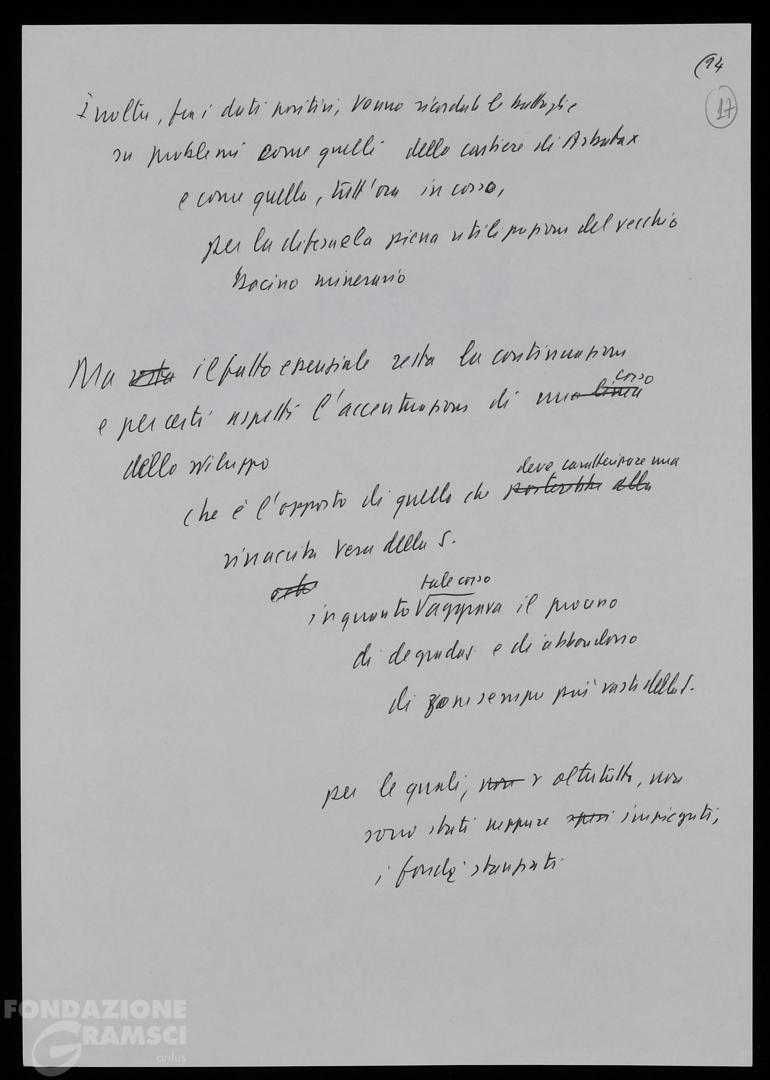 (14
17
Inoltre, fra i dati positivi, vanno ricordate le battaglie
su problemi come quelli della cartiera di Arbatax
e come quella, tutt'ora in corso,
per la difesa e la piena utilizzazione del vecchio
Bacino minerario
Ma resta il fatto essenziale resta la continuazione
corso
e per certi aspetti l'accentuazione di una linea
dello sviluppo
deve caratterizzare una
che è l'opposto di quello che porterebbe alla
rinascita vera della S.
tale corso
in quanto aggrava il processo
di degradaz e di abbandono
di zone sempre più vaste della S.
per le quali, non oltretutto, non
sono stati neppure spesi impiegati,
i fondi stanziati
FONDAZIONE
GRAMSCI
onlus